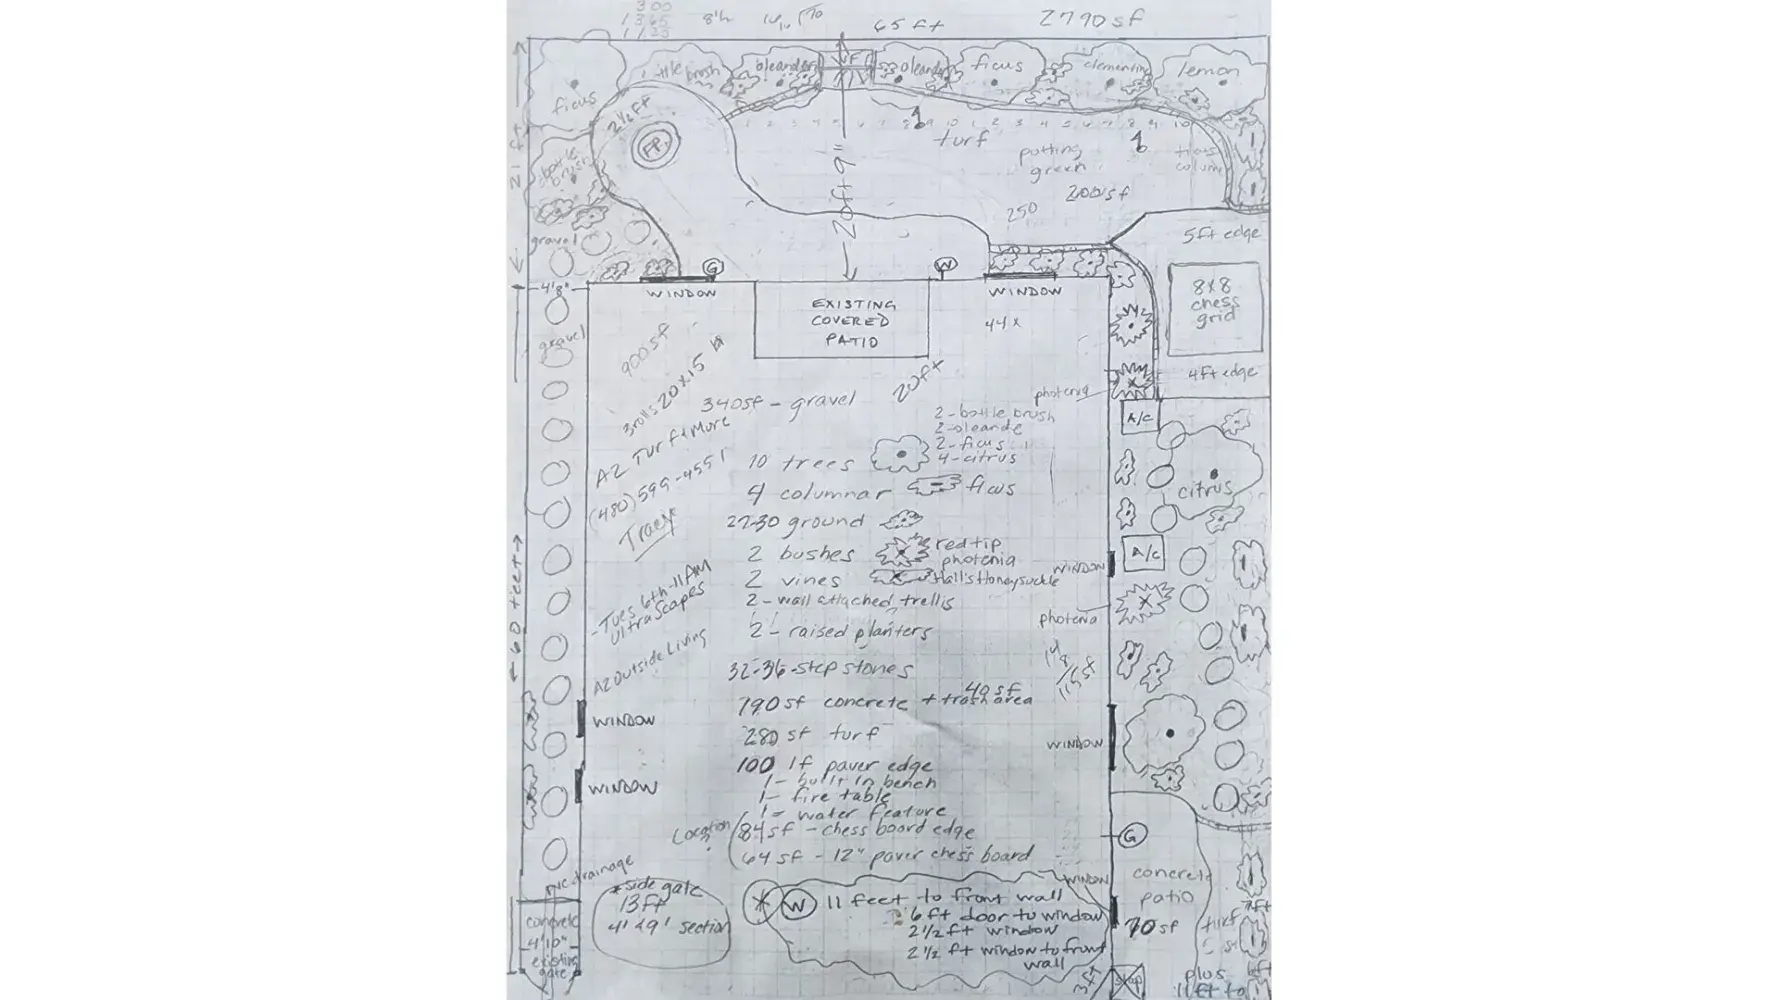 300
1365
1125
8'6
65 ft
2790 sf
ficus
bottle brush
oleander
oleander
ficus
clementine
lemon
21 ft
2 1/2 ft
FP
1 2 3 4 5 6 7 8 9 10 1 2 3 4 5 6 7 8 9 10
turf
putting
green
200 sf
250
column
20 ft 9"
bottle
brush
gravel
5ft edge
G
W
4'8"
WINDOW
EXISTING
COVERED
PATIO
WINDOW
44 x
8x8
chess
grid
gravel
4ft edge
900 sf
3 rolls 20x15
340 sf - gravel
20ft
photenia
A/C
AZ Turf & More
(480) 599-4551
Tracy
2-bottle brush
2-oleande
2-ficus
4-citrus
10 trees
4 columnar
ficus
27-30 ground
2 bushes
red tip
photenia
2 vines
Hall's Honeysuckle
2 - wall attached trellis
2 - raised planters
citrus
A/C
WINDOW
photenia
60 feet
- Tues 6th - 11AM
Ultra Scapes
AZ Outside Living
32-36 - step stones
790 sf concrete + trash area
40 sf
280 sf turf
WINDOW
WINDOW
WINDOW
100 lf paver edge
1 - built in bench
1 - fire table
1 - water feature
Location
84 sf - chess board edge
64 sf - 12" paver chess board
G
drainage
* side gate
13 ft
4' & 9' section
W
11 feet to front wall
6 ft door to window
2 1/2 ft window
2 1/2 ft window to front
wall
WINDOW
concrete
patio
70 sf
turf
concrete
4'10"
existing
gate
3ft
plus
11 ft to